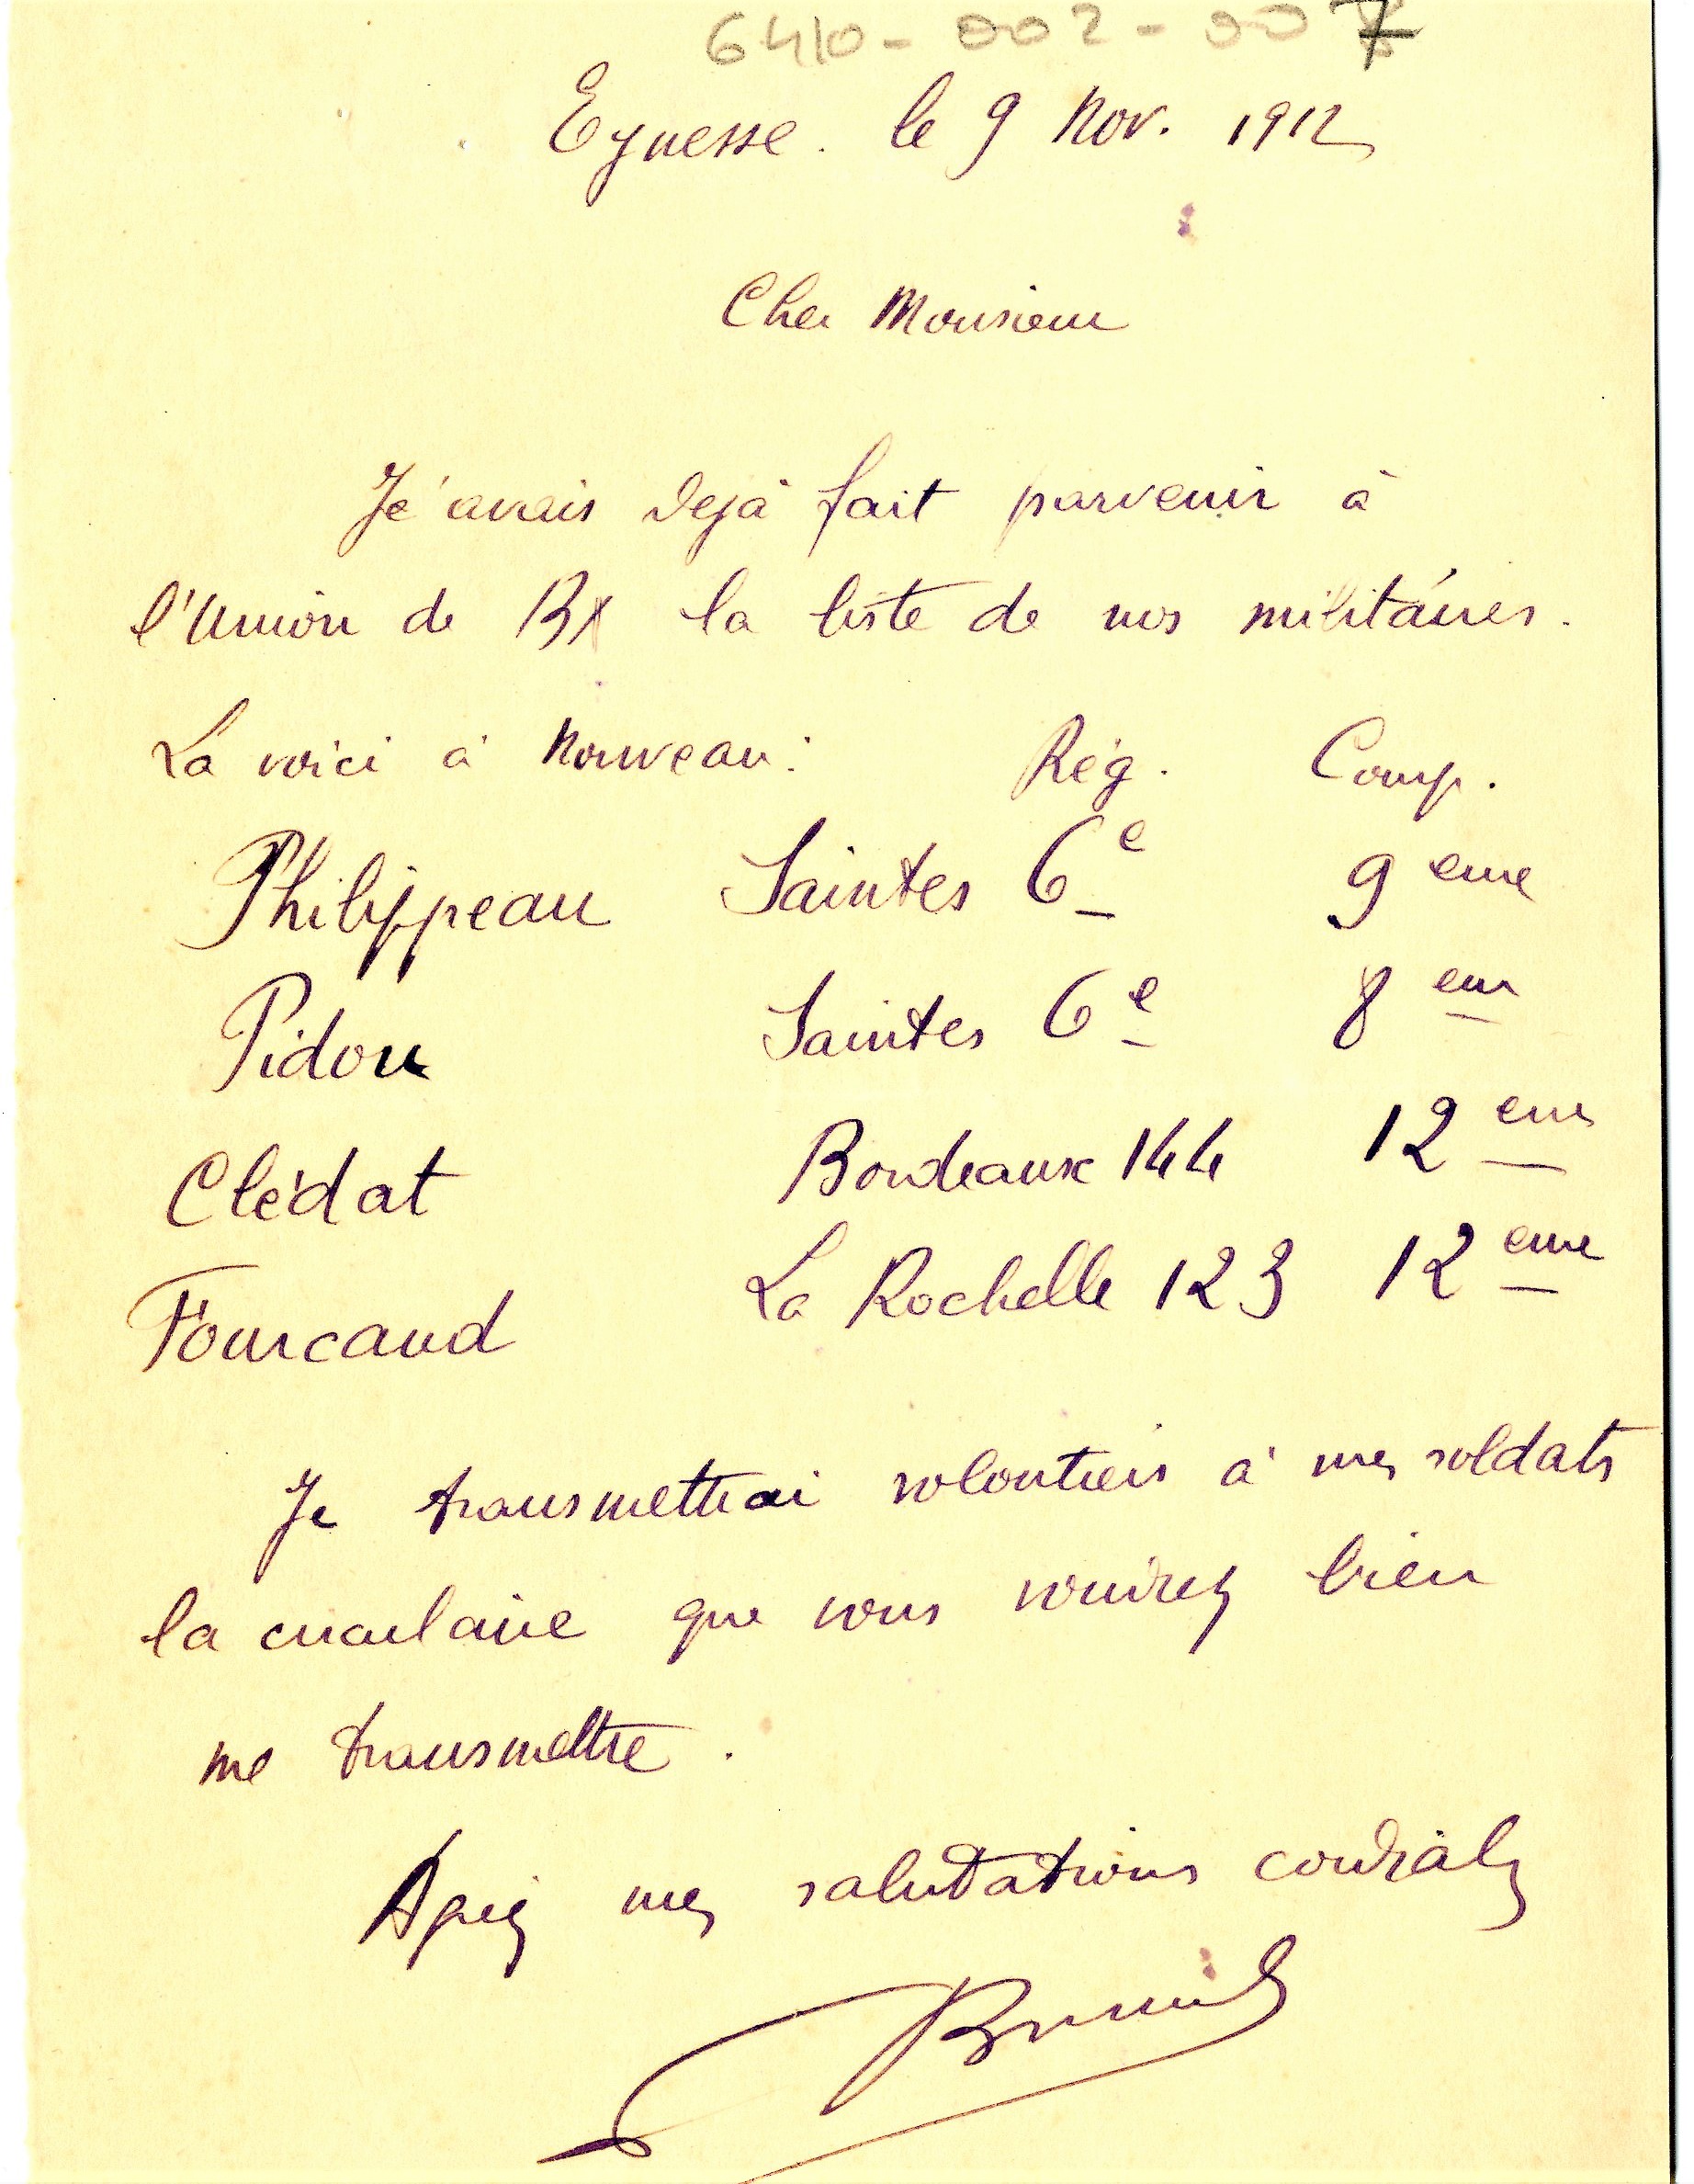 6410-002-007
Eynesse. le 9 Nov. 1912
Cher Monsieur
J'avais dejà fait parvenir à
l'Union de Bx la liste de nos militaires.
La voici à nouveau: Rég. Comp.
Philippeau Saintes 6e 9eme
Pidou Saintes 6e 8em
Clédat Bordeaux 144 12eme
Fourcaud La Rochelle 123 12eme
Je transmettrai volontiers à mes soldats
la circulaire que vous voudrez bien
me transmettre.
Agréez mes salutations cordiales